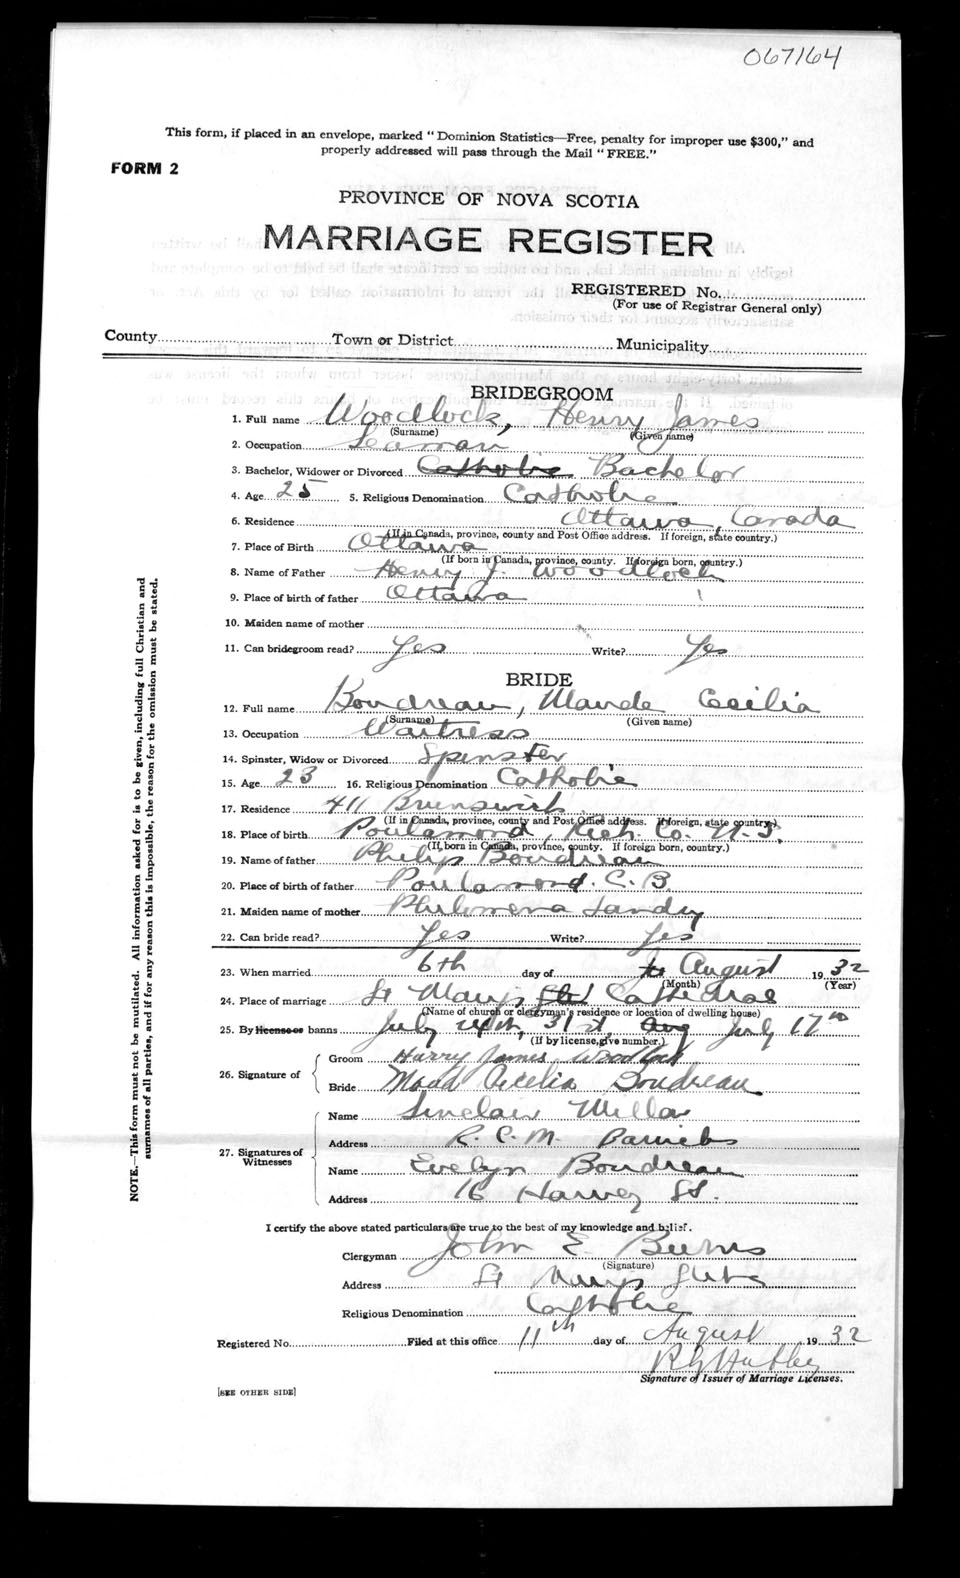 067164
This form, if placed in an envelope, marked "Dominion Statistics—Free, penalty for improper use $300," and
properly addressed will pass through the Mail "FREE."
FORM 2
PROVINCE OF NOVA SCOTIA
MARRIAGE REGISTER
REGISTERED No.
(For use of Registrar General only)
County Town or District Municipality
BRIDEGROOM
1. Full name Woodlock, Henry James
(Surname) (Given name)
2. Occupation Seaman
3. Bachelor, Widower or Divorced Catholic Bachelor
4. Age 25 5. Religious Denomination Catholic
6. Residence Ottawa, Canada
(If in Canada, province, county and Post Office address. If foreign, state country.)
7. Place of Birth Ottawa
(If born in Canada, province, county. If foreign born, country.)
8. Name of Father Henry J. Woodlock
9. Place of birth of father Ottawa
10. Maiden name of mother
11. Can bridegroom read? Yes Write? Yes
BRIDE
12. Full name Boudreau, Maude Cecilia
(Surname) (Given name)
13. Occupation Waitress
14. Spinster, Widow or Divorced Spinster
15. Age 23 16. Religious Denomination Catholic
17. Residence 411 Brunswick
(If in Canada, province, county and Post Office address. If foreign, state country.)
18. Place of birth Poulamond, Rich. Co. N.S.
(If born in Canada, province, county. If foreign born, country.)
19. Name of father Philip Boudreau
20. Place of birth of father Poulamond. C. B.
21. Maiden name of mother Philomena Landry
22. Can bride read? Yes Write? Yes
23. When married 6th day of August 1932
(Month) (Year)
24. Place of marriage St Mary's Cathedral
(Name of church or clergyman's residence or location of dwelling house)
25. By licenses or banns July 31st, Aug July 17th
(If by license, give number.)
26. Signature of
Groom Harry James Woodlock
Bride Maud Cecelia Boudreau
27. Signatures of Witnesses
Name Sinclair Millar
Address R. C. M. Barricks
Name Evelyn Boudreau
Address 16 Harvey St.
I certify the above stated particulars are true to the best of my knowledge and belief.
Clergyman John E. Burns
(Signature)
Address St Mary's Glebe
Religious Denomination Catholic
Registered No. Filed at this office 11th day of August 1932
Signature of Issuer of Marriage Licenses.
[SEE OTHER SIDE]
NOTE.—This form must not be mutilated. All information asked for is to be given, including full Christian and
surnames of all parties, and if for any reason this is impossible, the reason for the omission must be stated.